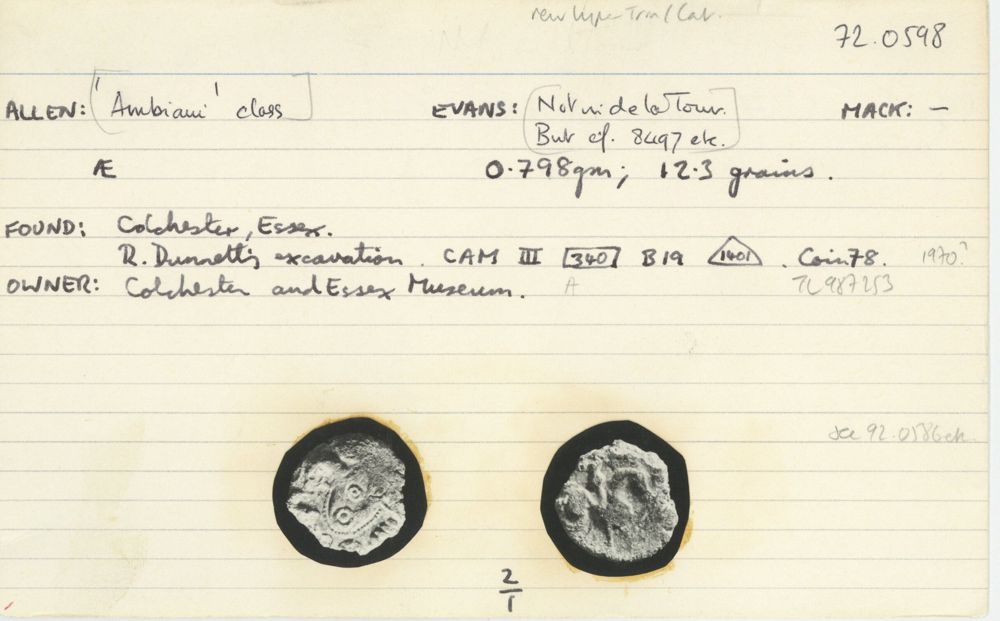 new type Trin/Cat.
72.0598
ALLEN: 'Ambiani' class EVANS: Not in de la Tour. MACK: –
But cf. 8497 etc.
Æ 0.798gm; 12.3 grains.
FOUND: Colchester, Essex.
R. Dunnett's excavation. CAM III 340 B19 1401 . Coin 78. 1970?
OWNER: Colchester and Essex Museum. A TL 987253
see 92.0586 etc.
2
1